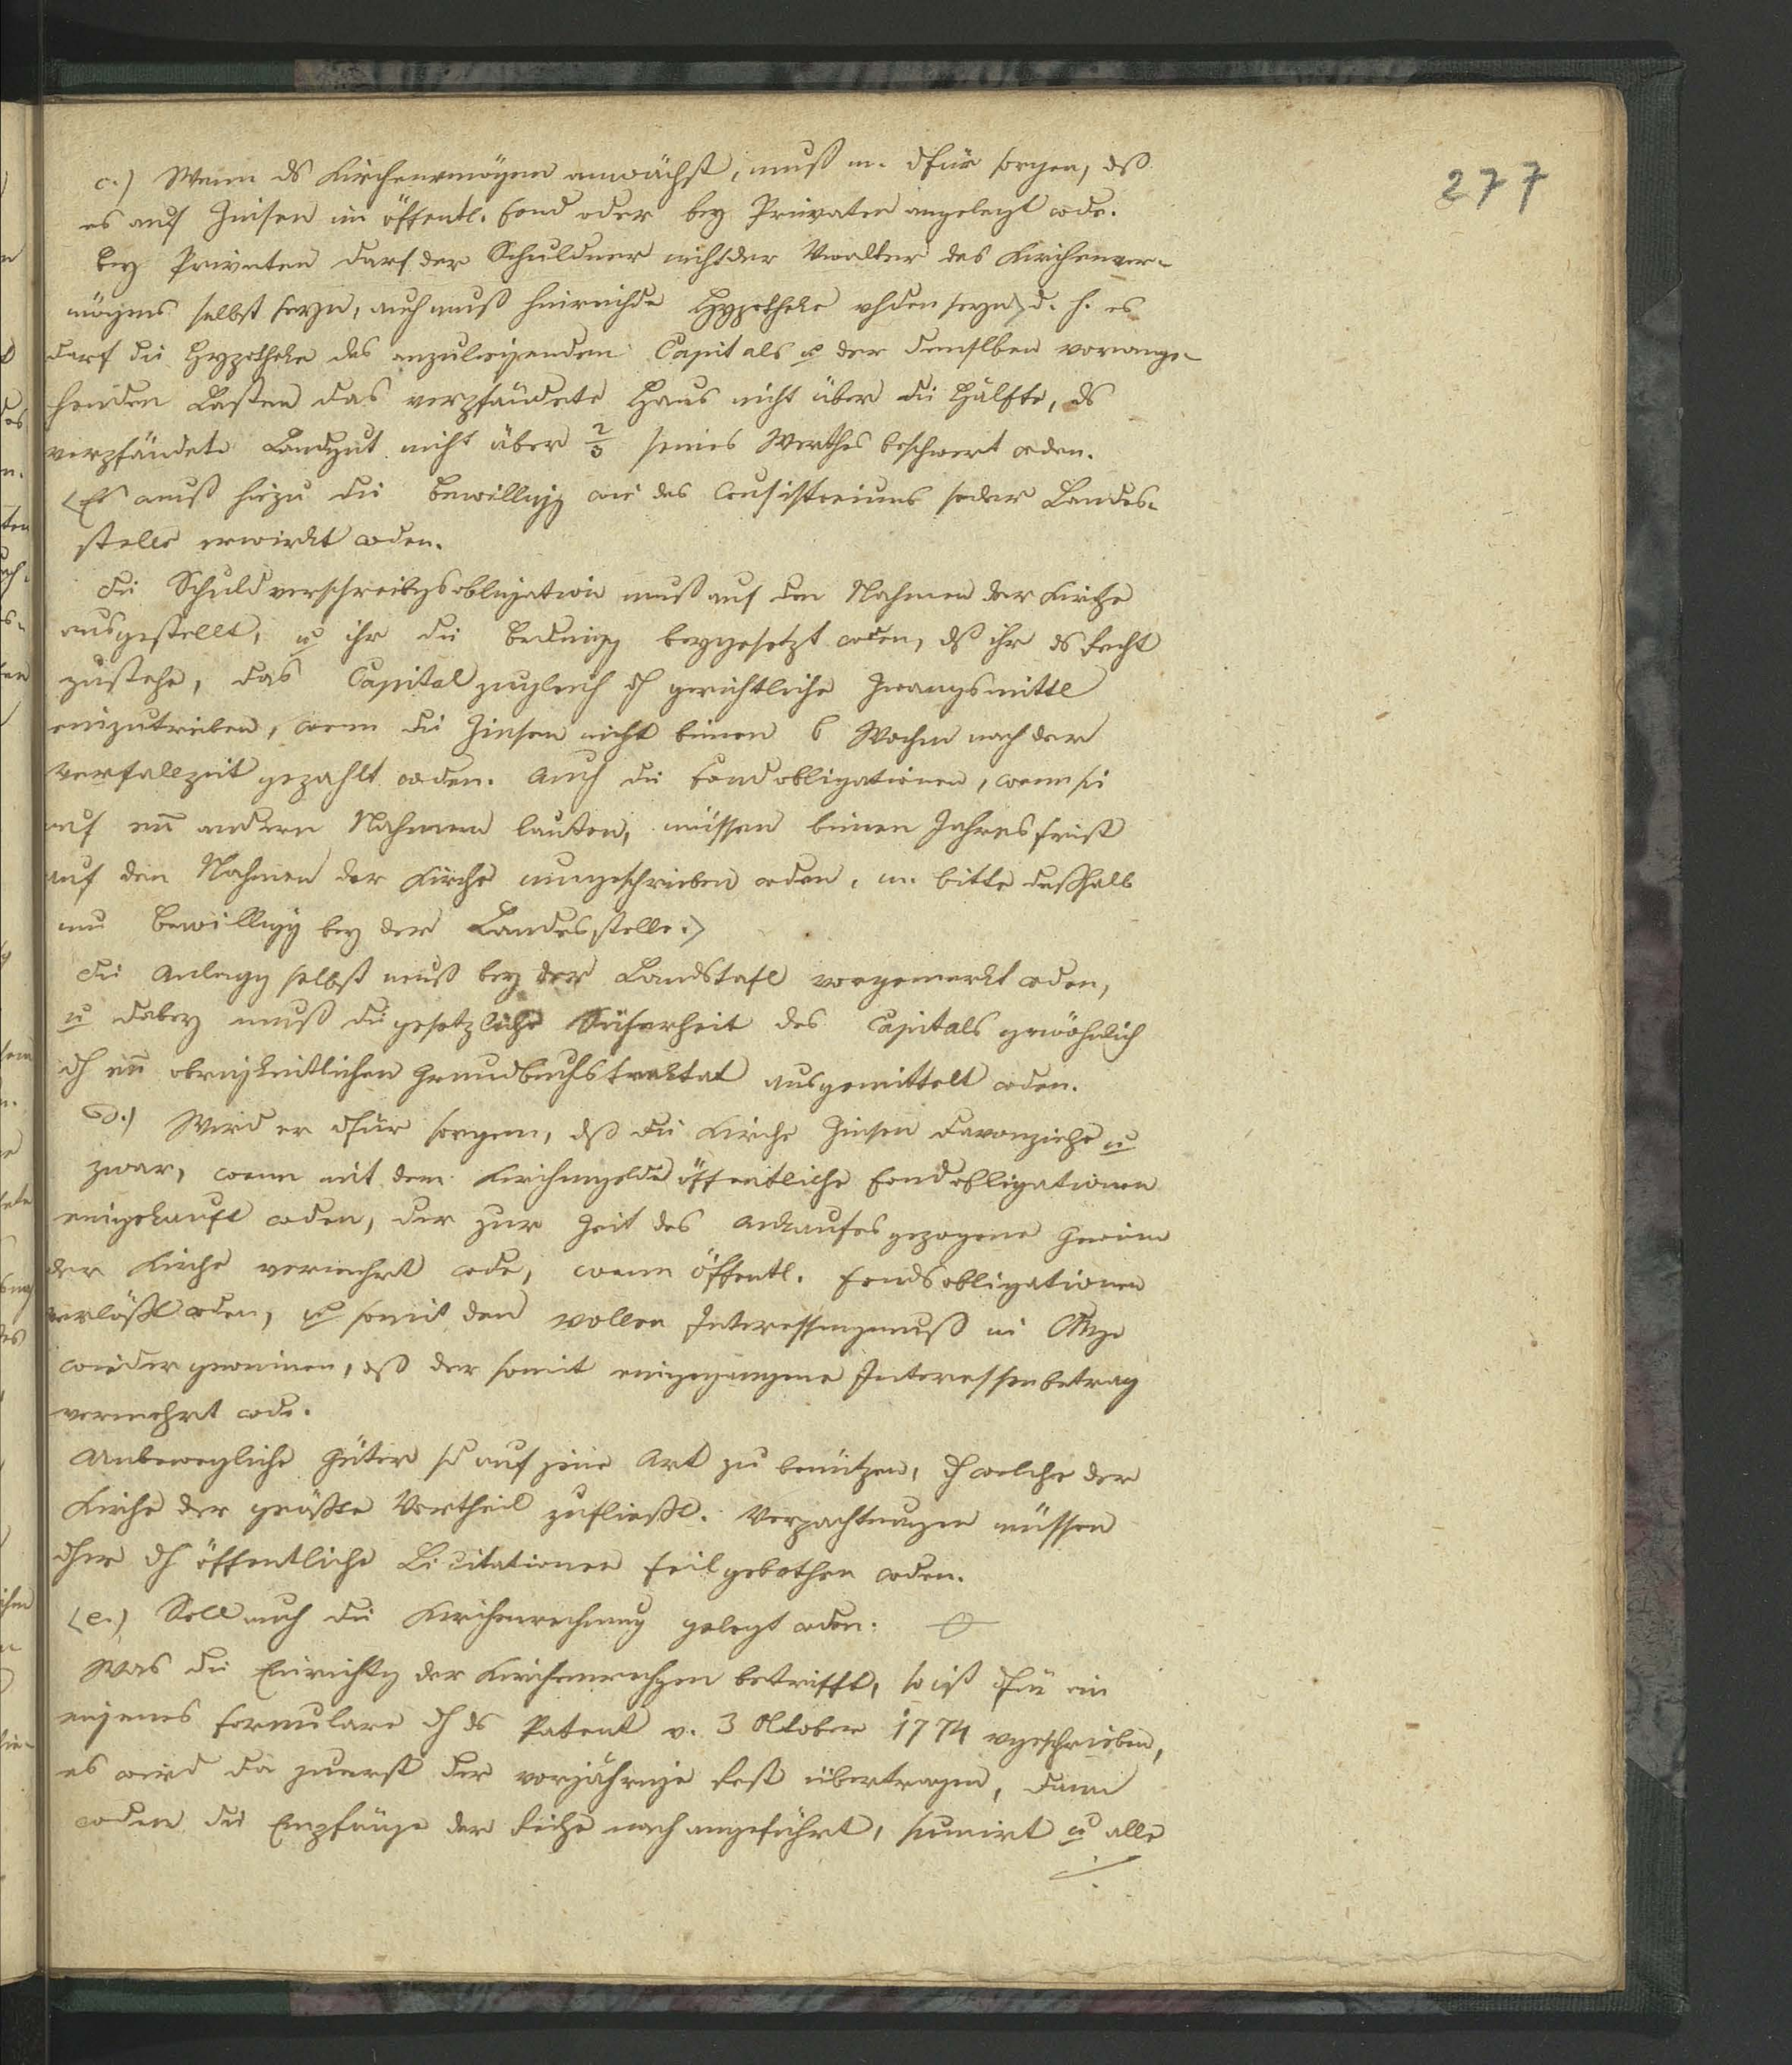 277
c.) Wenn ds Kirchenvmögen anwächst, muß m. dfür sorgen, dß
es auf Zinsen im öffentl. Fond oder bey Privaten angelegt wde.
Bey Privaten darf der Schuldner nicht der Vwalter des Kirchenver-
mögens selbst seyn, auch muß hinreichde Hypotheke vhden seyn> d. h. es
darf die Hypotheke des anzulegenden Capitals u der demselben vorange-
henden Lasten das verpfändete Haus nicht über die Hälfte, ds
verpfändete Landgut nicht über 2/3 seines Werthes beschwert wden.
<Es muß hiezu die Bewilligg wie des Consistoriums so der Landes-
stelle erwirkt wden.
Die Schuldverschreibgsobligation muß auf den Nahmen der Kirche
ausgestellt, u ihr die Bedingg beygesetzt wden, dß ihr ds Recht
zustehe, das Capital zugleich dch gerichtliche Zwangsmittel
einzutreiben, wenn die Zinsen nicht binnen 6 Wochen nach der
Verfallzeit gezahlt wden. Auch die Fondobligationen, wenn sie
auf einen andern Nahmen lauten, müssen binnen Jahresfrist
auf den Nahmen der Kirche umgeschrieben wden, m. bitte deßhalb
um Bewilligg bey der Landesstelle.>
Die Anlegg selbst muß bey der Landtafel vorgemerkt wden,
u dabey muß die gesetzliche Sicherheit des Capitals gewöhnlich
dch einen obrigkeitlichen Grundbuchstraktat ausgemittelt wden.
d.) Wird er dfür sorgen, dß die Kirche Zinsen davonziehe u
zwar, wenn mit dem Kirchengelde öffentliche Fondobligationen
eingekauft wden, der zur Zeit des Ankaufes gezogene Gewinn
der Kirche verrechnet wde, wenn öffentl. Fondsobligationen
verlost wden, u somit den vollen Interessengenuß
wieder gewinnen, dß der somit eingegangene Interessenbetrag
verrechnet wde.
Unbewegliche Güter sd auf jene Art zu benützen, dch welche der
Kirche der größte Vortheil zufließt. Verpachtungen müssen
dher dch öffentliche Licitationen feilgebothen wden.
<e.) Soll auch die Kirchenrechnung gelegt wden.
Was die Einrichtg der Kirchenrechngen betrifft, so ist dfür ein
eigenes Formulare dch ds Patent v. 3 Oktober 1774 vgeschrieben,
es wird da zuerst der vorjährige Rest übertragen, dann
wden die Empfänge der Reihe nach angeführt, sumirt u alle